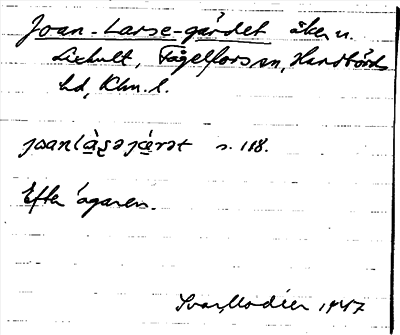 Joan-Larse-gärdet åker u.
Lixhult, Fågelfors sn, Handbörds
hd, Klm. l.
joanlàʂəjæ̀rət s. 118.
Efter ägaren.
Ivar Modéer 1947